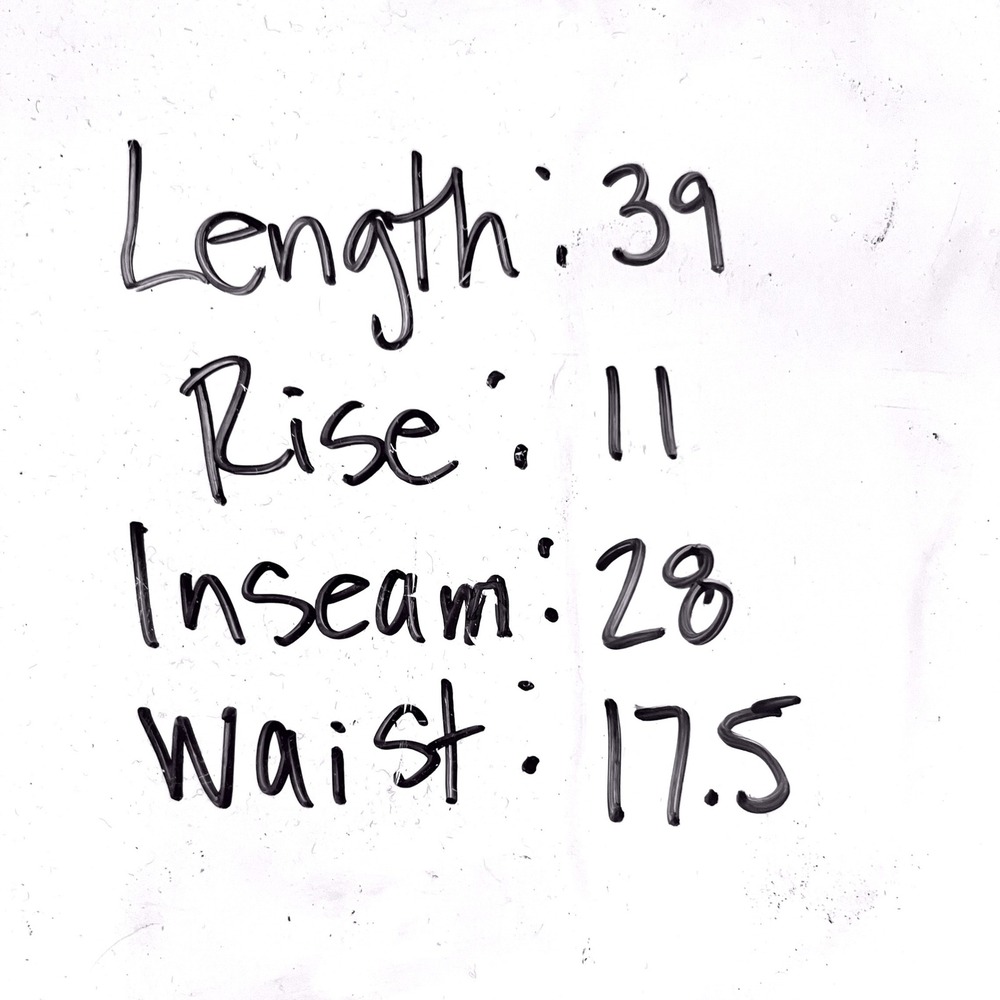 Length: 39
Rise: 11
Inseam: 28
Waist: 17.5